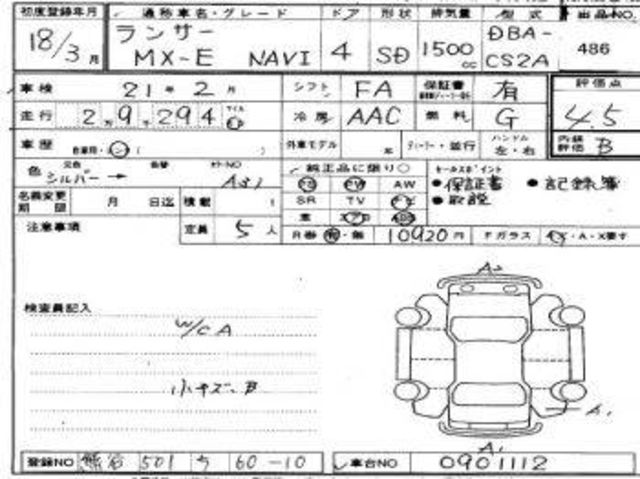 初度登録年月 通称車名・グレード ドア 形状 排気量 型式 出品NO.
18/3月 ランサー MX-E NAVI 4 SD 1500cc DBA-CS2A 486
車検 21年2月 シフト FA 保証書 有 評価点
走行 2万9千294 冷房 AAC 燃料 G 4.5
車歴 自家用 外車モデル 年 ディーラー・並行 ハンドル 左・右 内装評価 B
色 元色 シルバー→ 色替 カラーNO A31 純正品に限り○ セールスポイント
PS PW AW ●保証書 ●記録簿
名義変更期限 月 日迄 積載 t SR TV ナビ ●取説
革 エアB ABS
注意事項 定員 5人 R券 有・無 10920円 Fガラス
A2
検査員記入
W/C A
小キズ、B
A1
A1
登録NO 熊谷 501 う 60-10 車台NO 0901112